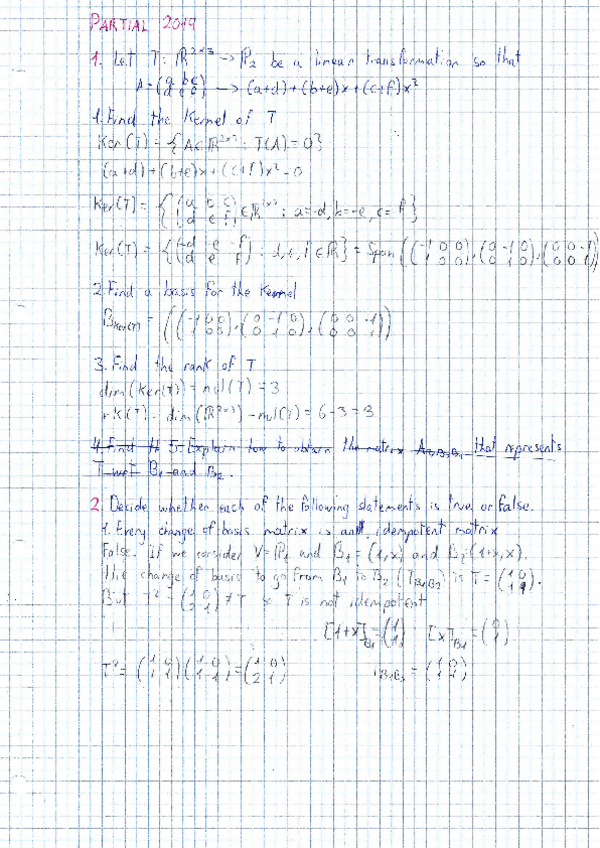 PARTIAL 2019
1. Let T: ℝ^{2×3} → ℙ₂ be a linear transformation so that
A = (a b c / d e f) → (a+d) + (b+e)x + (c+f)x²
1. Find the Kernel of T
Ker(T) = {A∈ℝ^{2×3} : T(A) = 0}
(a+d) + (b+e)x + (c+f)x² = 0
Ker(T) = {(a b c / d e f) ∈ ℝ^{2×3} : a=-d, b=-e, c=-f}
Ker(T) = {(-d -e -f / d e f) : d, e, f ∈ ℝ} = Span((-1 0 0 / 1 0 0), (0 -1 0 / 0 1 0), (0 0 -1 / 0 0 1))
2. Find a basis for the Kernel
B_{Ker(T)} = ((-1 0 0 / 1 0 0), (0 -1 0 / 0 1 0), (0 0 -1 / 0 0 1))
3. Find the rank of T
dim(Ker(T)) = nul(T) = 3
rk(T) = dim(ℝ^{2×3}) - nul(T) = 6-3 = 3
4. Find # 5. Explain how to obtain the matrix that represents
T wrt B₁ and B₂.
2. Decide whether each of the following statements is true or false.
1. Every change of basis matrix is an idempotent matrix
False. If we consider V=ℙ₁ and B₁ = (1,x) and B₂=(1+x,x).
The change of basis to go from B₁ to B₂ (T_{B₁B₂}) is T = (1 0 / 1 1).
But T² = (1 0 / 2 1) ≠ T so T is not idempotent
[1+x]_{B₁} = (1 / 1) [x]_{B₁} = (0 / 1)
T² = (1 0 / 1 1)(1 0 / 1 1) = (1 0 / 2 1) T_{B₁B₂} = (1 0 / 1 1)